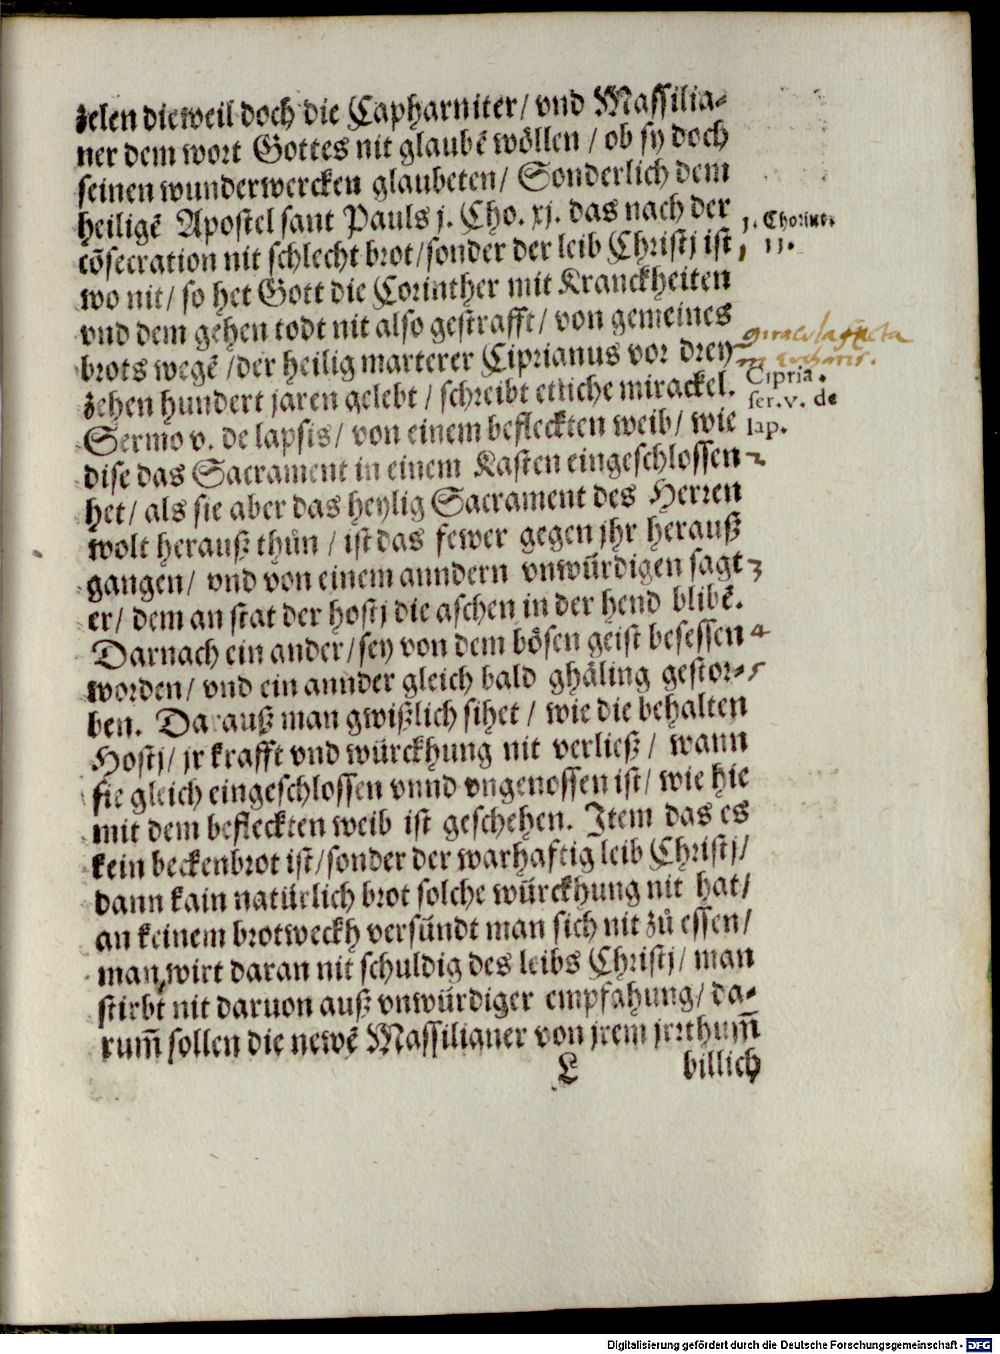 zelen dieweil doch die Capharniter/ vnd Massilia-
ner dem wort Gottes nit glaubē wöllen / ob sy doch
seinen wunderwercken glaubeten/ Sonderlich dem
heiligē Apostel sant Pauls j. Cho. xj. das nach der
cōsecration nit schlecht brot/sonder der leib Christj ist
wo nit/ so het Gott die Corinther mit Kranckheiten
vnd dem gehen todt nit also gestrafft/ von gemeines
brots wegē /der heilig marterer Ciprianus vor drey-
zehen hundert jaren gelebt / schreibt etliche mirackel.
Sermo v. de lapsis/ von einem befleckten weib/ wie
dise das Sacrament in einem Kasten eingeschlossen
het/ als sie aber das heylig Sacrament des Herren
wolt herauß thůn / ist das fewer gegen jhr herauß
gangen/ vnd von einem anndern vnwürdigen sagt
er/ dem an stat der hostj die aschen in der hend blibē.
Darnach ein ander/ sey von dem bösen geist besessen
worden/ vnd ein annder gleich bald ghäling gestor-
ben. Darauß man gwißlich sihet / wie die behalten
Hostj/ jr krafft vnd würckhung nit verließ / wann
sie gleich eingeschlossen vnnd vngenossen ist/ wie hie
mit dem befleckten weib ist geschehen. Item das es
kein beckenbrot ist/sonder der warhaftig leib Christj/
dann kain natürlich brot solche würckhung nit hat/
an keinem brotweckh versündt man sich nit zů essen/
man wirt daran nit schuldig des leibs Christj/ man
stirbt nit daruon auß vnwürdiger empfahung/ da-
rum̄ sollen die newē Massilianer von jrem jrrthum̄
L billich
j. Chorint.
11.
miracula facta
in eucharis.
Cipria.
ser. v. de
lap.
2
3
4
5
Digitalisierung gefördert durch die Deutsche Forschungsgemeinschaft - DFG